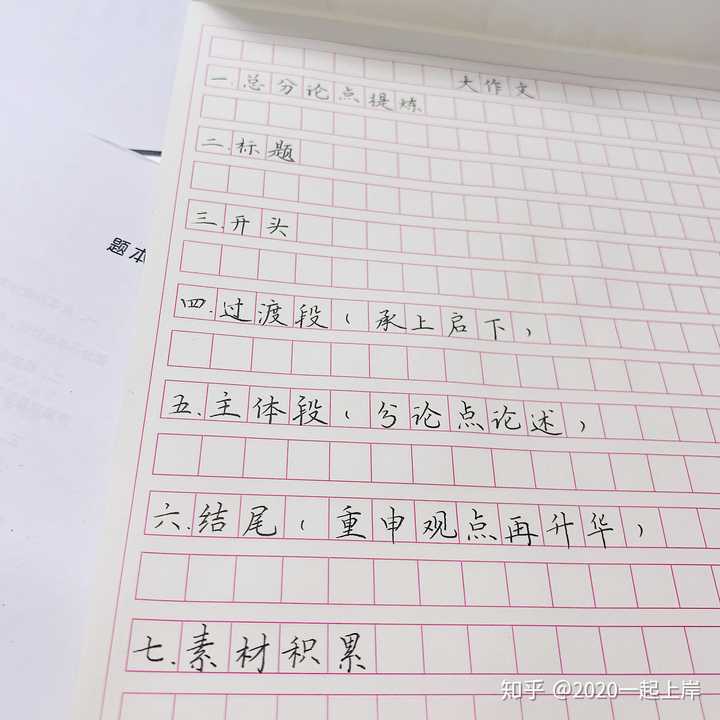 大作文
一.总分论点提炼
二.标题
三.开头
题本
四.过渡段(承上启下)
五.主体段(分论点论述)
六.结尾(重申观点再升华)
七.素材积累
知乎 @2020一起上岸